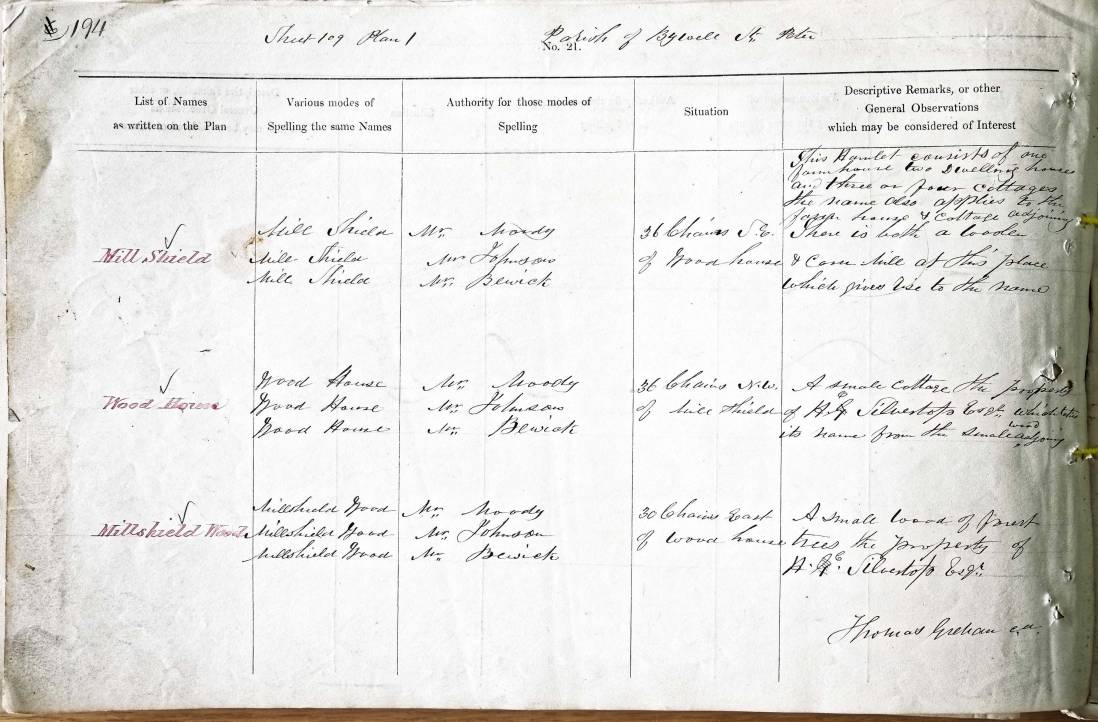 194
Sheet 109 Plan 1 Parish of Bywell St. Peter
No. 21.
List of Names
as written on the Plan
Various modes of
Spelling the same Names
Authority for those modes of
Spelling
Situation
Descriptive Remarks, or other
General Observations
which may be considered of Interest
Mill Shield
Mill Shield
Mill Shield
Mill Shield
Mr. Moody
Mr. Johnson
Mr. Bewick
36 Chains S.E.
of Wood house
This Hamlet consists of one
farm house two dwelling houses
and three or four cottages
the name also applies to the
farm house & Cottage adjoining
There is both a woolen
& Corn Mill at this place
which gives to the name
Wood House
Wood House
Wood House
Wood House
Mr. Moody
Mr. Johnson
Mr. Bewick
36 Chains N.W.
of Mill Shield
A small cottage the property
of H. E. Silvertop Esqr. which takes
its name from the small wood adjoining
Millshield Wood
Millshield Wood
Millshield Wood
Millshield Wood
Mr. Moody
Mr. Johnson
Mr. Bewick
30 Chains East
of Wood house
A small wood of forest
trees the property of
H. E. Silvertop Esqr.
Thomas